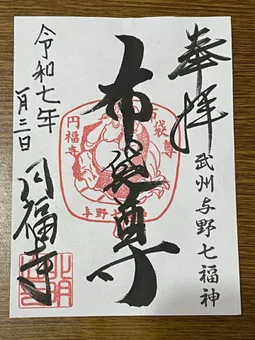 奉拝
武州与野七福神
布袋尊
袋尊
円福寺
与野
令和七年
一月三日
円福寺